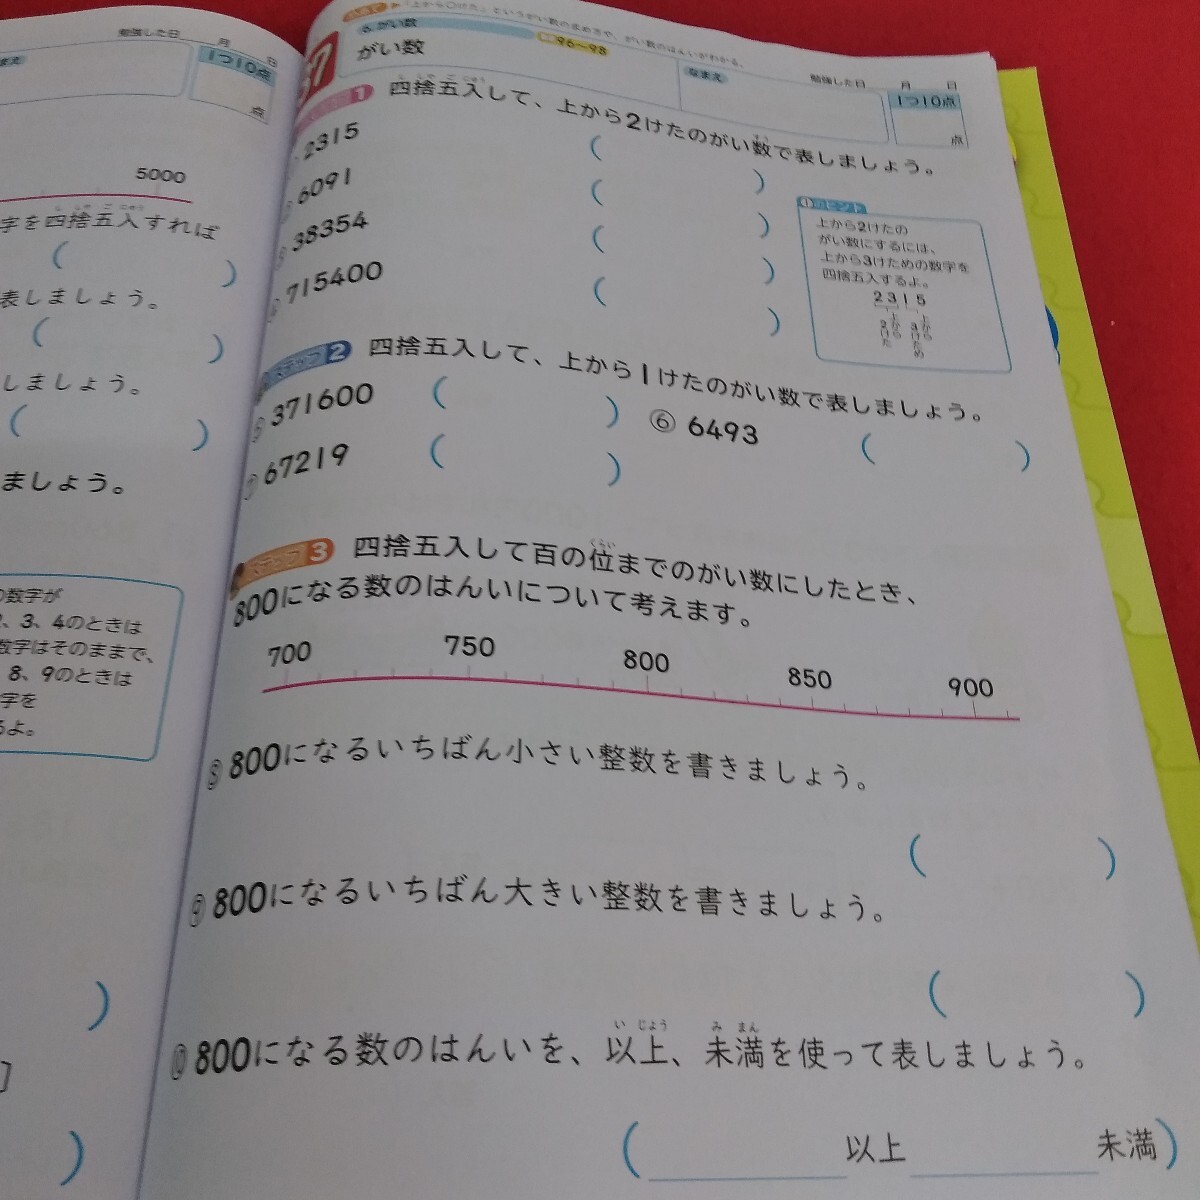 勉強した日 月 日
1つ10点
点
5000
字を四捨五入すれば
( )
表しましょう。
( )
しましょう。
( )
ましょう。
の数字が
2、3、4のときは
数字はそのままで、
8、9のときは
字を
るよ。
「上から○けた」というがい数の求め方や、がい数のはんいがわかる。
37
6.がい数
がい数
96~98
なまえ
勉強した日 月 日
1つ10点
点
1 四捨五入して、上から2けたのがい数で表しましょう。
2315 ( )
6091 ( )
38354 ( )
715400 ( )
①のヒント
上から2けたの
がい数にするには、
上から3けための数字を
四捨五入するよ。
2315
上から2けた
上から3けため
ステップ2 四捨五入して、上から1けたのがい数で表しましょう。
⑤ 371600 ( ) ⑥ 6493 ( )
⑦ 67219 ( )
ステップ3 四捨五入して百の位までのがい数にしたとき、
800になる数のはんいについて考えます。
700 750 800 850 900
⑧ 800になるいちばん小さい整数を書きましょう。
( )
⑨ 800になるいちばん大きい整数を書きましょう。
( )
⑩ 800になる数のはんいを、以上、未満を使って表しましょう。
( 以上 未満)